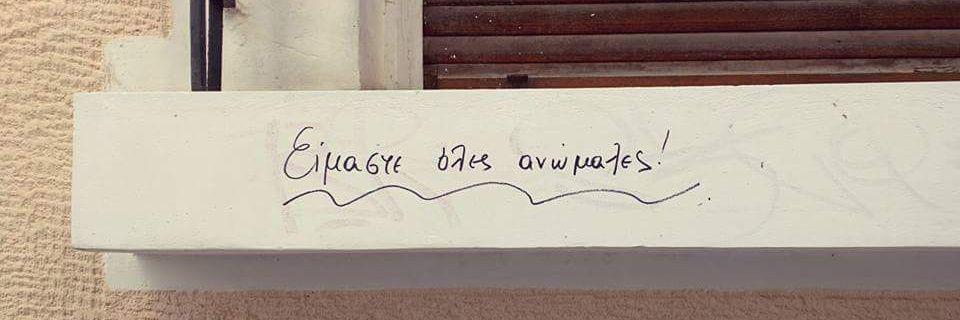 Είμαστε όλες ανώμαλες!